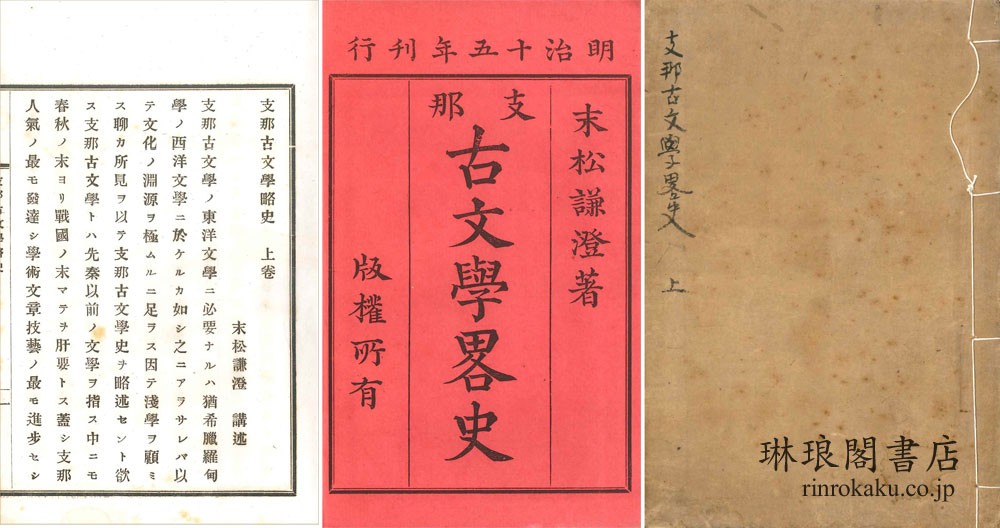 支那古文學略史 上卷
末松謙澄 講述
支那古文學ノ東洋文學ニ必要ナルハ猶希臘羅甸
學ノ西洋文學ニ於ケルカ如シ之ニアラサレバ以
テ文化ノ淵源ヲ極ムルニ足ラス因テ淺學ヲ顧ミ
ス聊カ所見ヲ以テ支那古文學史ヲ略述セント欲
ス支那古文學トハ先秦以前ノ文學ヲ指ス中ニモ
春秋ノ末ヨリ戰國ノ末マテヲ肝要トス蓋シ支那
人氣ノ最モ發達シ學術文章技藝ノ最モ進步セシ
明治十五年刊行
末松謙澄著
支那
古文學畧史
版權所有
支那古文學畧史 上
琳琅閣書店
rinrokaku.co.jp